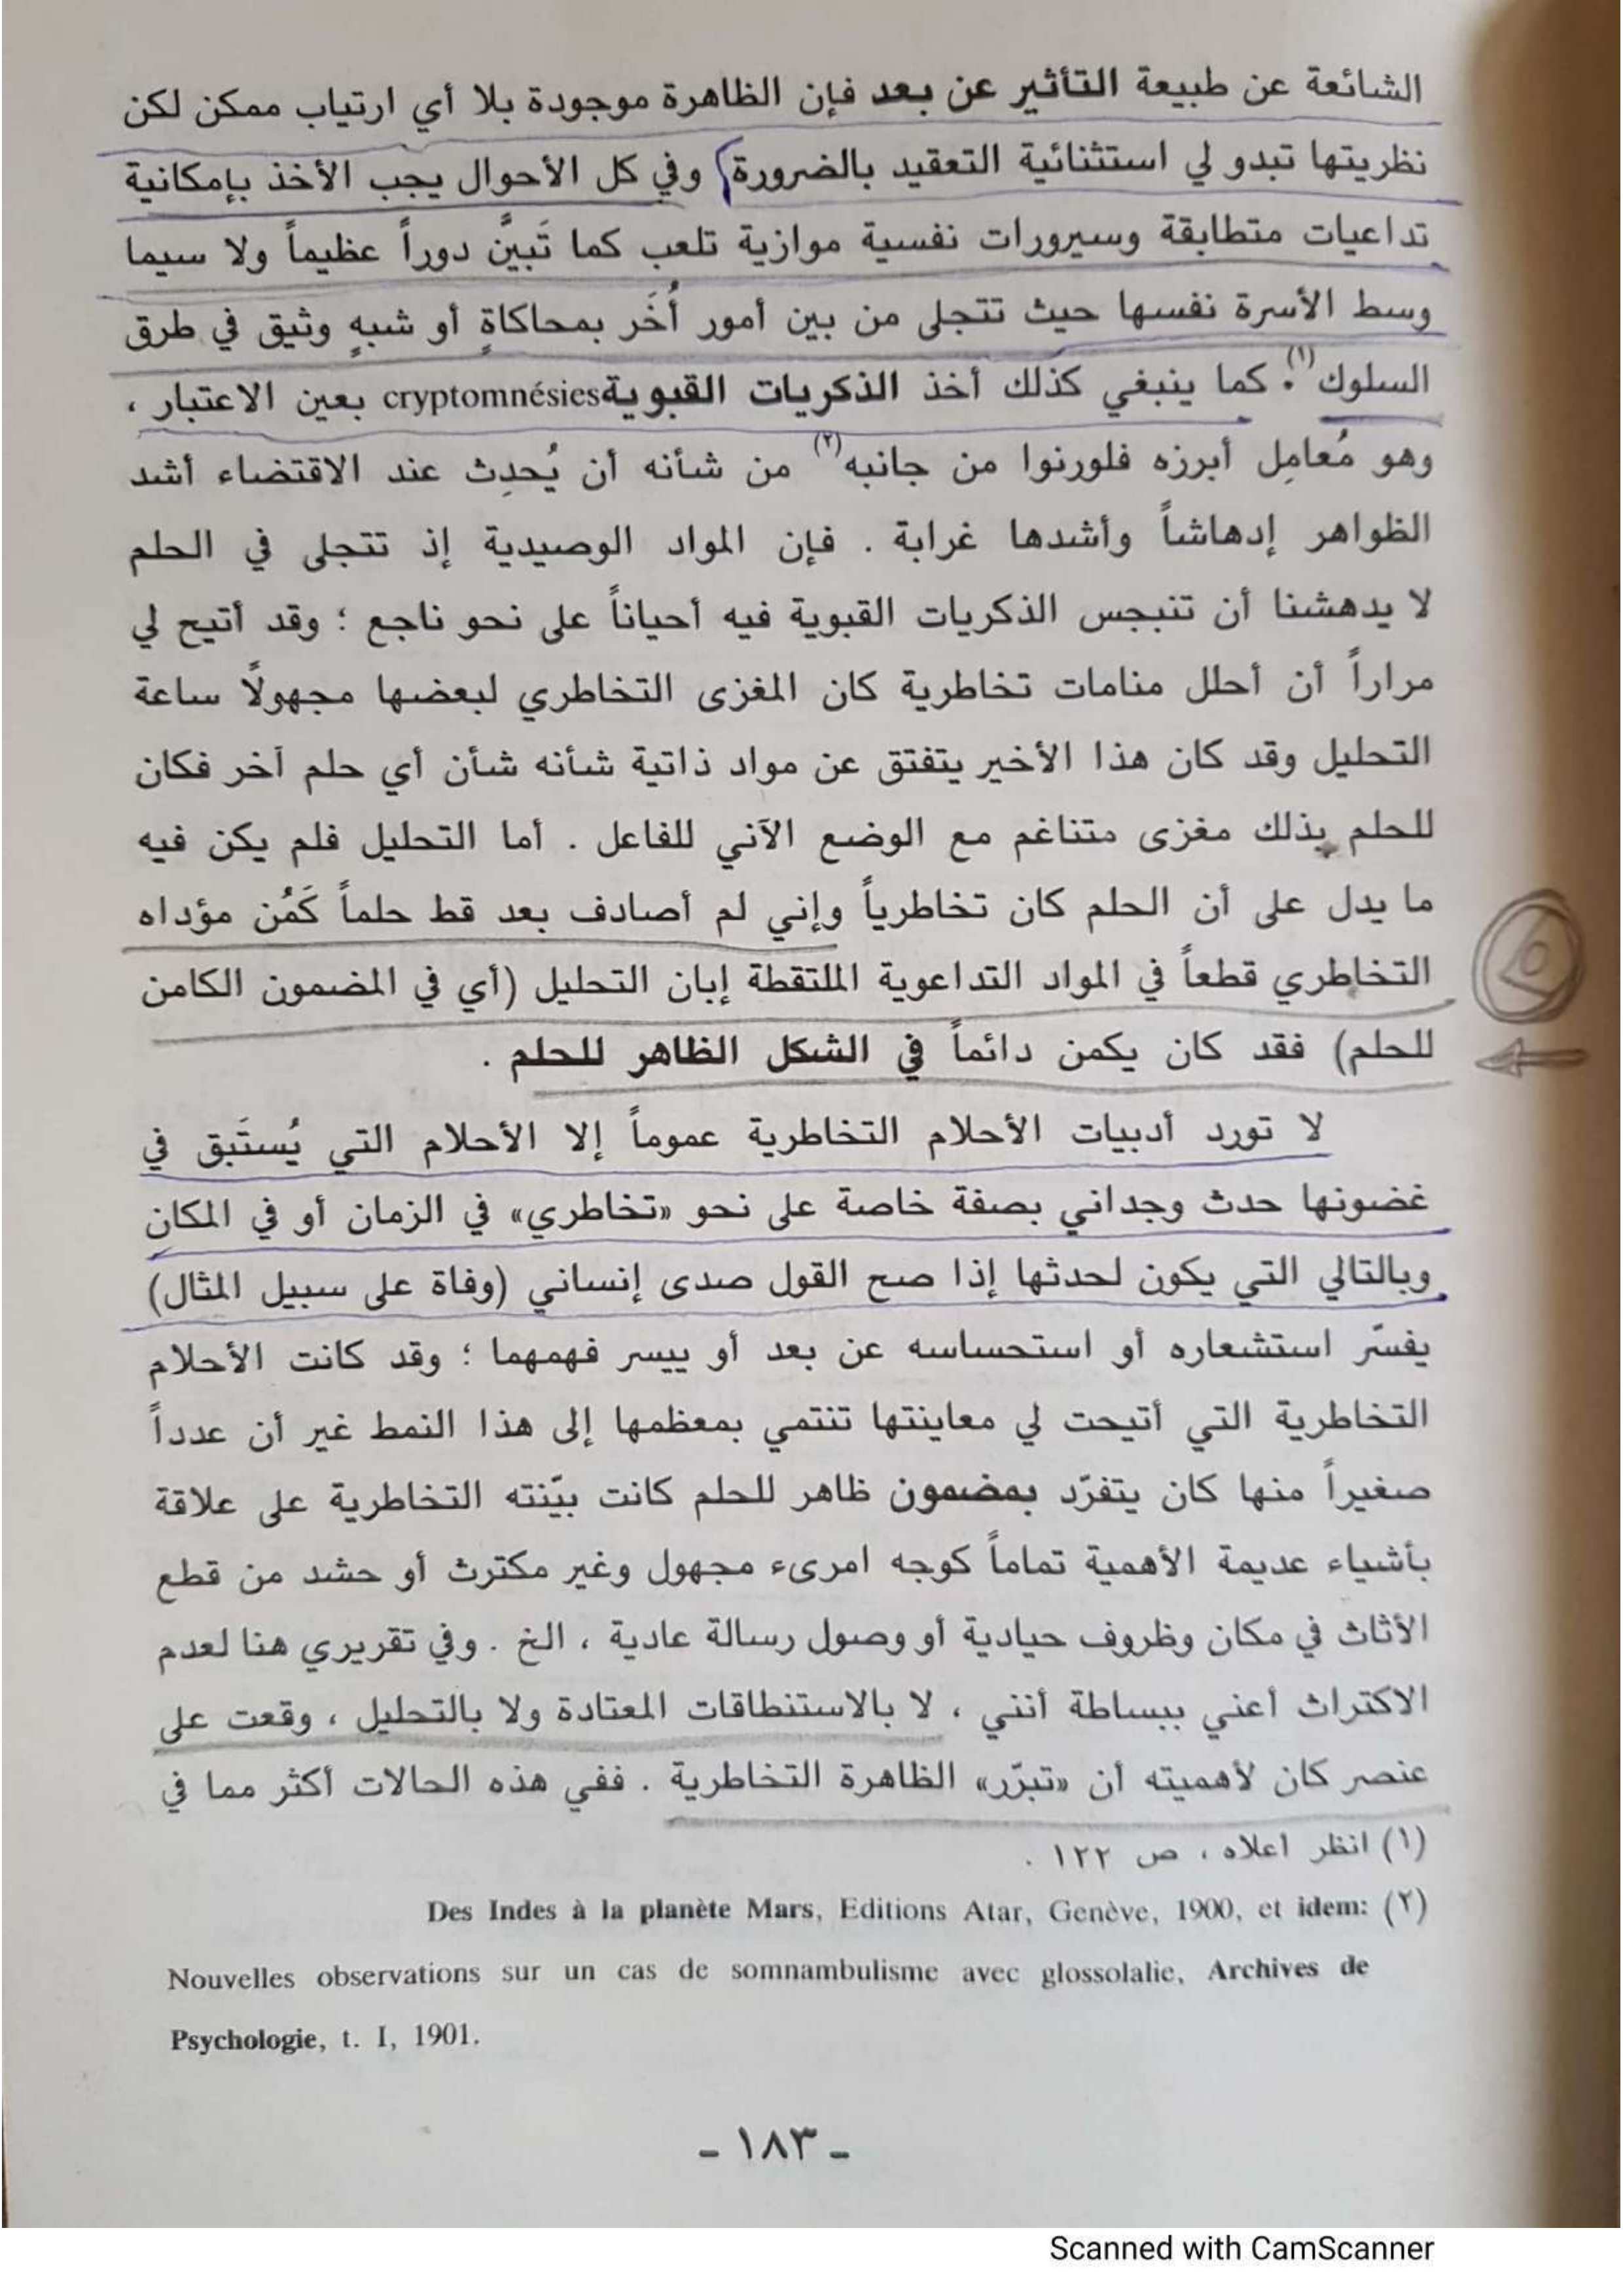 الشائعة عن طبيعة التأثير عن بعد فإن الظاهرة موجودة بلا أي ارتياب ممكن لكن
نظريتها تبدو لي استثنائية التعقيد بالضرورة) وفي كل الأحوال يجب الأخذ بإمكانية
تداعيات متطابقة وسيرورات نفسية موازية تلعب كما تَبيَّن دوراً عظيماً ولا سيما
وسط الأسرة نفسها حيث تتجلى من بين أمور أُخَر بمحاكاةٍ أو شبهٍ وثيق في طرق
السلوك(١). كما ينبغي كذلك أخذ الذكريات القبوية cryptomnésies بعين الاعتبار ،
وهو مُعامِل أبرزه فلورنوا من جانبه(٢) من شأنه أن يُحدِث عند الاقتضاء أشد
الظواهر إدهاشاً وأشدها غرابة . فإن المواد الوصيدية إذ تتجلى في الحلم
لا يدهشنا أن تنبجس الذكريات القبوية فيه أحياناً على نحو ناجع ؛ وقد أتيح لي
مراراً أن أحلل منامات تخاطرية كان المغزى التخاطري لبعضها مجهولاً ساعة
التحليل وقد كان هذا الأخير يتفتق عن مواد ذاتية شأنه شأن أي حلم آخر فكان
للحلم بذلك مغزى متناغم مع الوضع الآني للفاعل . أما التحليل فلم يكن فيه
ما يدل على أن الحلم كان تخاطرياً وإني لم أصادف بعد قط حلماً كَمُن مؤداه
التخاطري قطعاً في المواد التداعوية الملتقطة إبان التحليل (أي في المضمون الكامن
للحلم) فقد كان يكمن دائماً في الشكل الظاهر للحلم .
لا تورد أدبيات الأحلام التخاطرية عموماً إلا الأحلام التي يُستَبق في
غضونها حدث وجداني بصفة خاصة على نحو «تخاطري» في الزمان أو في المكان
وبالتالي التي يكون لحدثها إذا صح القول صدى إنساني (وفاة على سبيل المثال)
يفسّر استشعاره أو استحساسه عن بعد أو ييسر فهمهما ؛ وقد كانت الأحلام
التخاطرية التي أتيحت لي معاينتها تنتمي بمعظمها إلى هذا النمط غير أن عدداً
صغيراً منها كان يتفرّد بمضمون ظاهر للحلم كانت بيّنته التخاطرية على علاقة
بأشياء عديمة الأهمية تماماً كوجه امرىء مجهول وغير مكترث أو حشد من قطع
الأثاث في مكان وظروف حيادية أو وصول رسالة عادية ، الخ . وفي تقريري هنا لعدم
الاكتراث أعني ببساطة أنني ، لا بالاستنطاقات المعتادة ولا بالتحليل ، وقعت على
عنصر كان لأهميته أن «تبرّر» الظاهرة التخاطرية . ففي هذه الحالات أكثر مما في
(١) انظر أعلاه ، ص ١٢٢ .
(٢) Des Indes à la planète Mars, Editions Atar, Genève, 1900, et idem:
Nouvelles observations sur un cas de somnambulisme avec glossolalie, Archives de
Psychologie, t. I, 1901.
- ١٨٣ -
Scanned with CamScanner